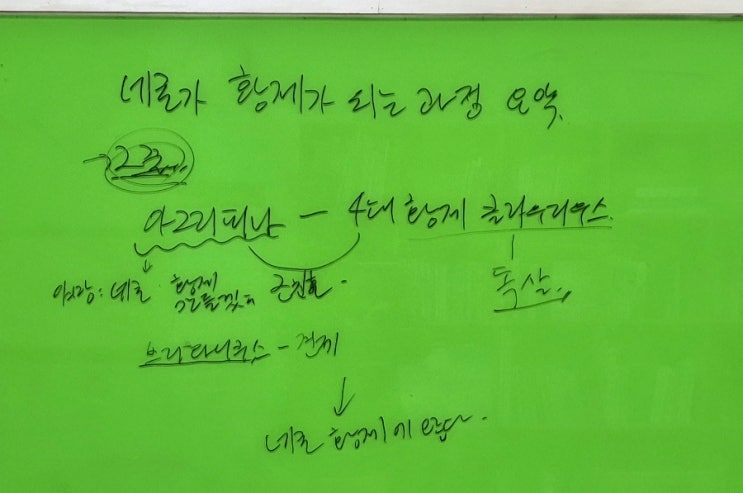 네로가 황제가 되는 과정 요약.
아그리피나 - 4대 황제 클라우디우스.
네로 황제 근친혼.
독살.,
브리타니쿠스 - 견제
↓
네로 황제에 앉다.